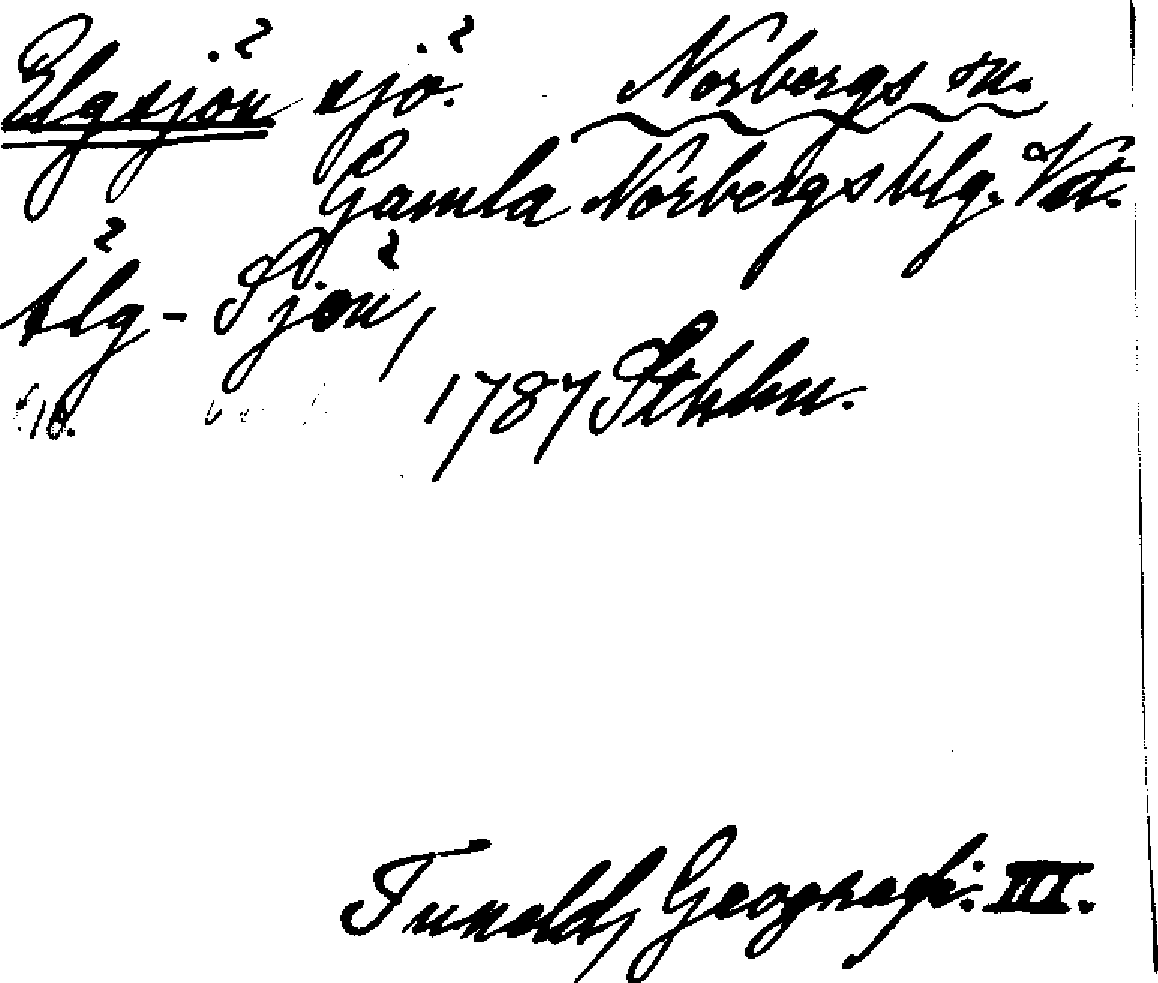 Elgsjön sjö. Norbergs sn.
Gamla Norbergs blg. Vst.
Älg-Sjön,
1787 Sthlm.
Tuneld, Geografi. III.